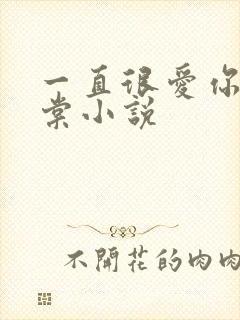 一直很爱你
棠小説
不開花的肉肉